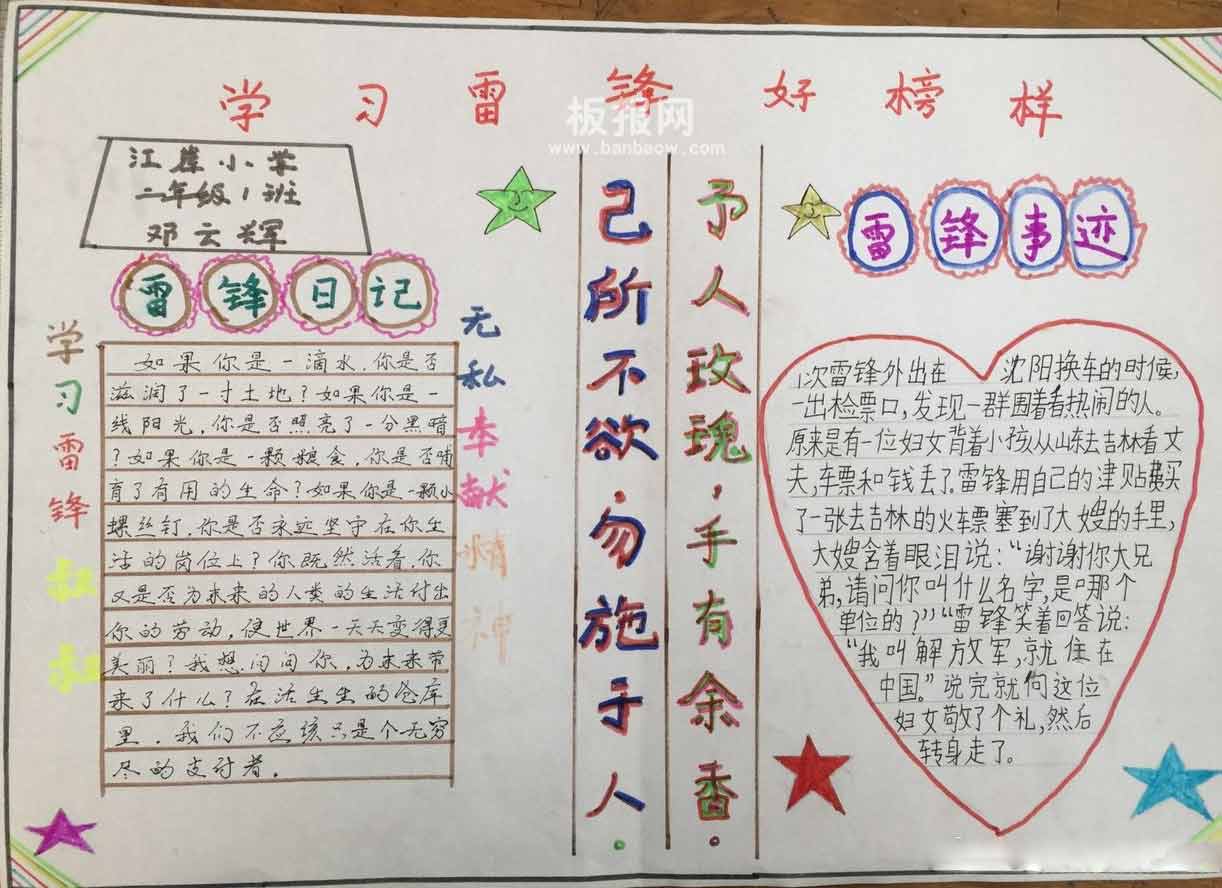 学习雷锋好榜样
板报网
www.banbaow.com
江崖小学
二年级1班
邓云辉
雷锋日记
学习雷锋叔叔
如果你是一滴水，你是否
滋润了一寸土地？如果你是一
线阳光，你是否照亮了一分黑暗
？如果你是一颗粮食，你是否哺
育了有用的生命？如果你是一颗小
螺丝钉，你是否永远坚守在你生
活的岗位上？你既然活着，你
又是否为未来的人类的生活付出
你的劳动，使世界一天天变得更
美丽？我想问问你，为未来带
来了什么？在活生生的仓库
里，我们不应该只是个无穷
尽的支付者。
无私奉献精神
己所不欲，勿施于人。
予人玫瑰，手有余香。
雷锋事迹
1次雷锋外出在 沈阳换车的时候，
一出检票口，发现一群围着看热闹的人。
原来是有一位妇女背着小孩从山东去吉林看丈
夫，车票和钱丢了。雷锋用自己的津贴费买
了一张去吉林的火车票塞到了大嫂的手里，
大嫂含着眼泪说：“谢谢你大兄
弟，请问你叫什么名字，是哪个
单位的？”“雷锋笑着回答说：
“我叫解放军，就住在
中国。”说完就向这位
妇女敬了个礼，然后
转身走了。